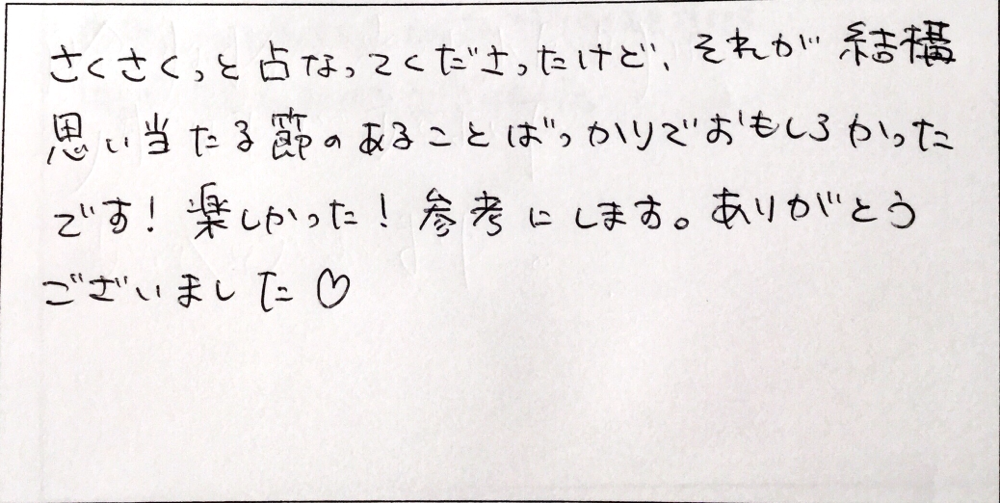 さくさくっと占なってくださったけど、それが結構
思い当たる節のあることばっかりでおもしろかった
です！楽しかった！参考にします。ありがとう
ございました♡